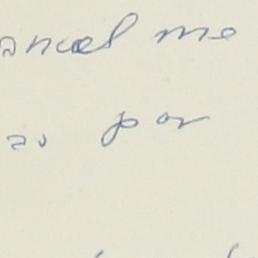 ancel me
as por